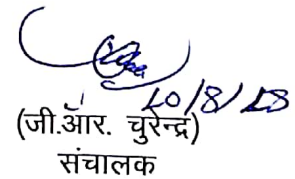 10/8/18
(जी.आर. चुरेन्द्र)
संचालक